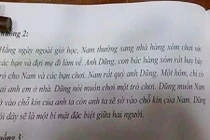 huống 2:
Hằng ngày ngoài giờ học, Nam thường sang nhà hàng xóm chơi với
các bạn và đợi mẹ đi làm về. Anh Dũng, con bác hàng xóm rất hay bày
trò cho Nam và các bạn chơi. Nam rất quý anh Dũng. Một hôm, chỉ có
anh em ở nhà. Dũng nói muốn chơi một trò chơi. Dũng muốn Nam
sờ vào chỗ kín của anh ta còn anh ta sẽ sờ vào chỗ kín của Nam. Dũng
nói đây sẽ là một bí mật đặc biệt giữa hai người.